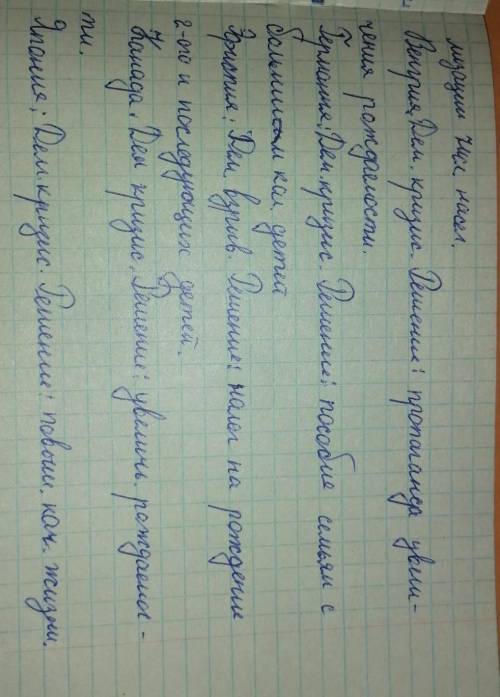 лизации числ. насел.
Венгрия, Дем. кризис. Решение: пропаганда увели-
чения рождаемости.
Германия: Дем. кризис. Решение: пособие семьям с
большим кол детей
Эфиопия: Дем. взрыв. Решение: налог на рождение
2-ого и последующих детей.
Канада. Дем кризис. Решение: увеличь рождаемос-
ти.
Япония; Дем. кризис. Решение: повыш. кач. жизни.